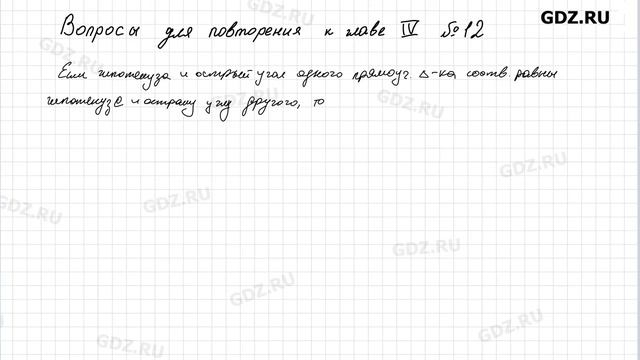 GDZ.RU
Вопросы для повторения к главе IV № 12
Если гипотенуза и острый угол одного прямоуг. Δ-ка соотв. равны
гипотенузе и острому углу другого, то
GDZ.RU
GDZ.RU
GDZ.RU
GDZ.RU
GDZ.RU
GDZ.RU
GDZ.RU
GDZ.RU
GDZ.RU
GDZ.RU